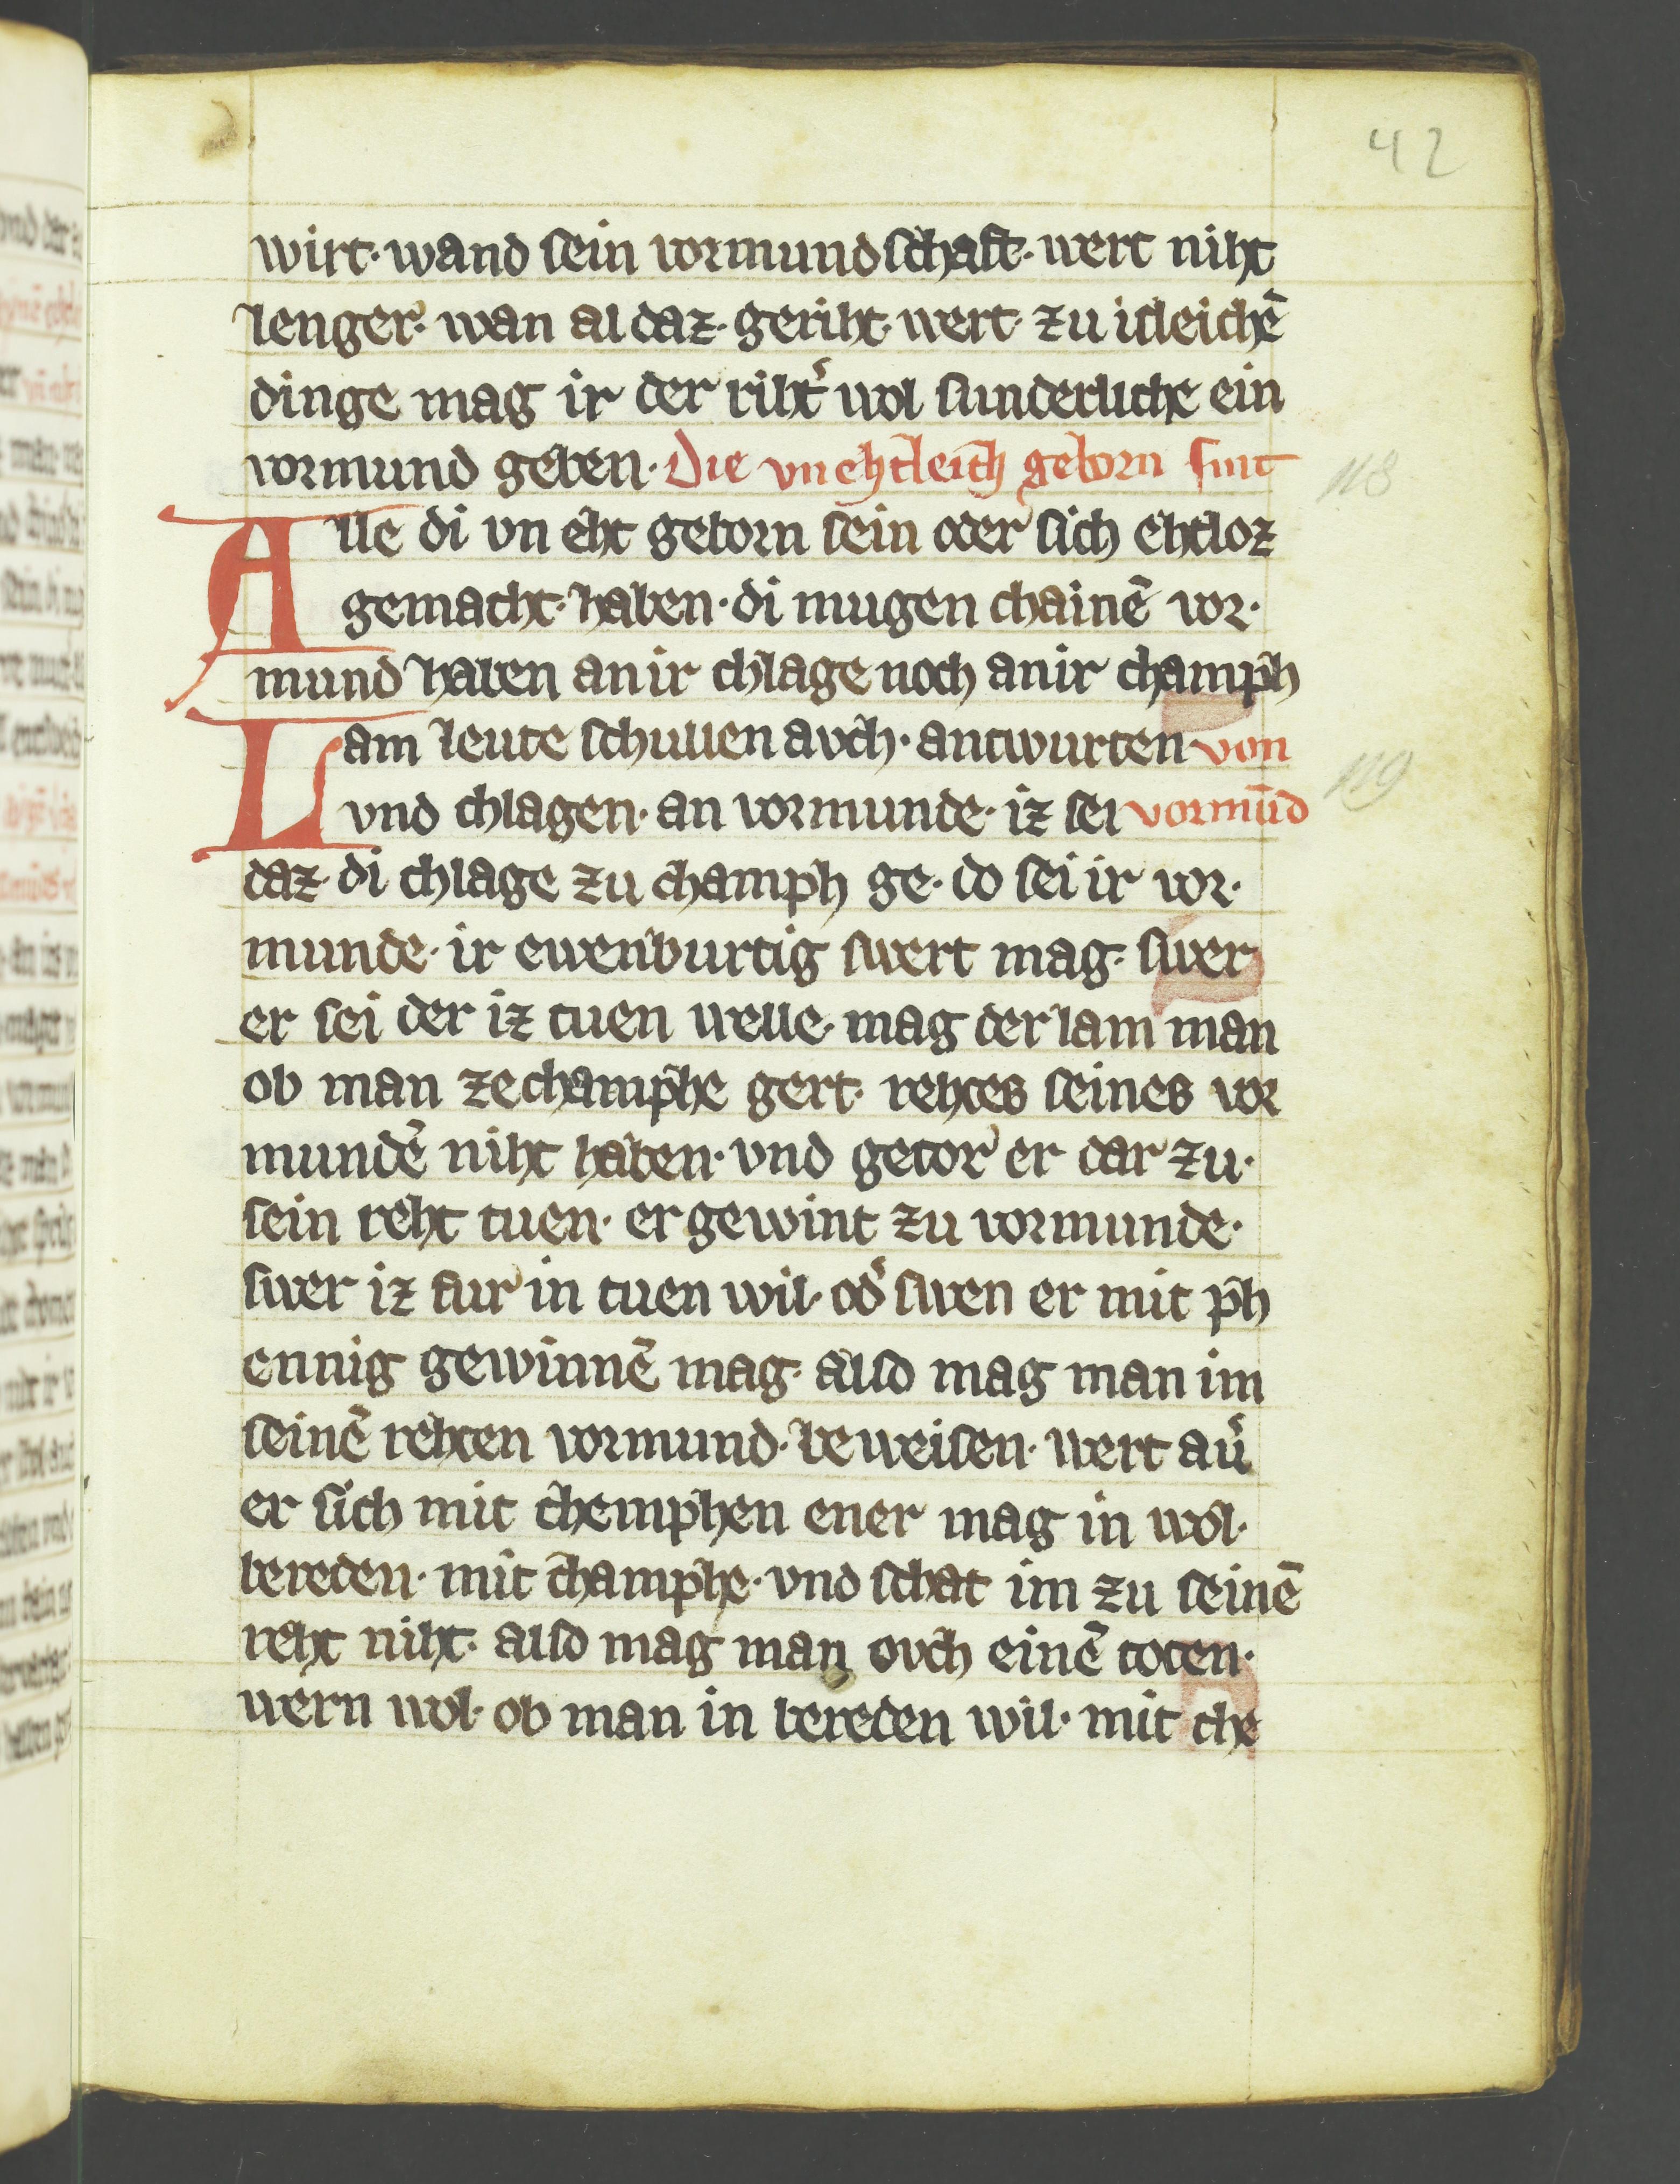 42
wirt· wand sein vormundschaft· wert niht
lenger· wan al daz· geriht· wert· zu icleichē
dinge mag ir der riht͛ wol sunderliche ein
vormund geben· Die vnehtleich geborn sint
118
Alle di vn eht geborn sein oder sich ehtloz
gemacht· haben· di mugen chainē vor·
mund haben an ir chlage noch an ir champh
Lam leute schullen avch· antwurten· von
vnd chlagen· an vormunde· iz sei vormūd
119
daz· di chlage zu champh ge· do sei ir vor·
munde· ir ewenburtig swert mag· swer
er sei der iz tuen welle· mag der lam man
ob man ze champhe gert· rehtes seines vor
mundē niht haben· vnd getor er dar zu·
sein reht tuen· er gewint zu vormunde·
swer iz fur in tuen wil· od͛ swen er mit ph
ennig gewinnē mag· also mag man im
seinē rehten vormund· beweisen· wert au͛
er sich mit chemphen ener mag in wol·
bereden· mit champhe· vnd schat im zu seinē
reht niht· also mag man ovch einē toten·
wern wol· ob man in bereden wil· mit che